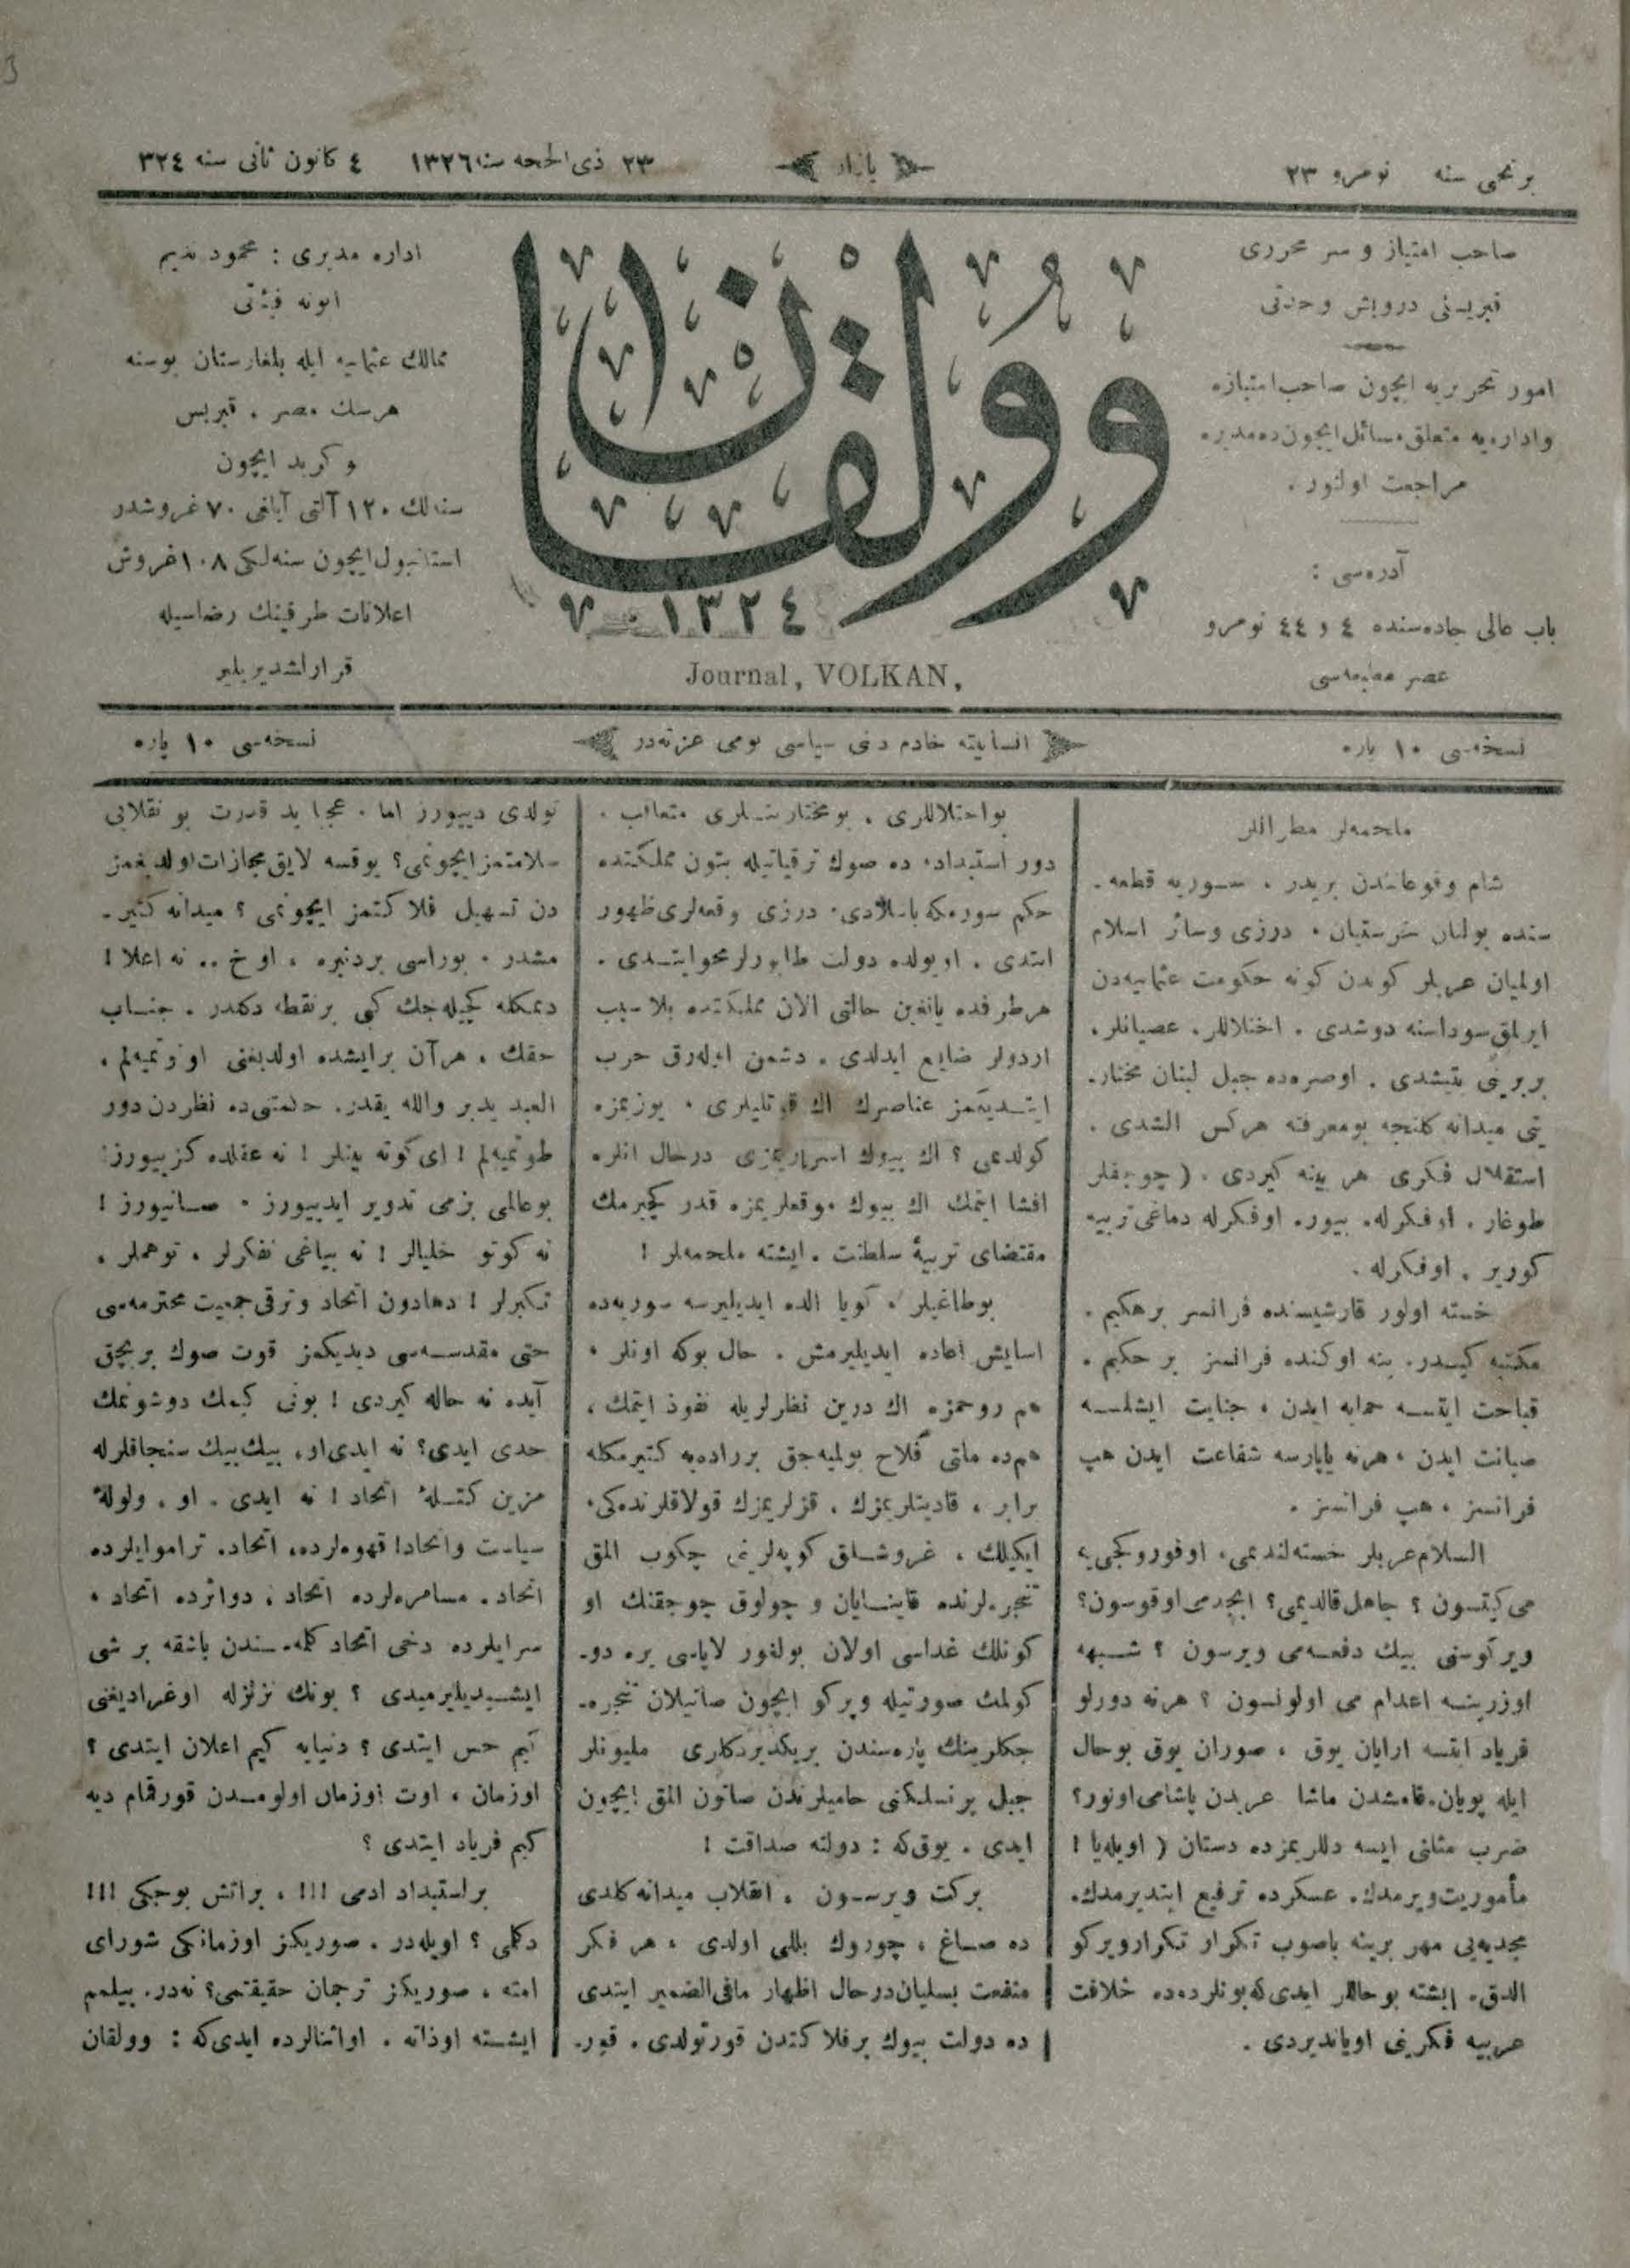 برنجی سنه نومرو ٢٣
بازار
٢٣ ذی الحجه سنه ١٣٢٦
٤ كانون ثانی سنه ٣٢٤
صاحب امتياز و سر محرری
قبريسلی درويش وحدتی
امور تحريريه ايچون صاحب امتيازه
واداره‌يه متعلق مسائل ايچون ده مديره
مراجعت اولنور .
آدره‌سی :
باب عالی جاده‌سنده ٤ و ٤٤ نومرو
عصر مطبعه‌سی
وولقان
١٣٢٤
Journal, VOLKAN,
اداره مديری : محمود نديم
ابونه فيئاتی
ممالك عثمانيه ايله بلغارستان بوسنه
هرسك مصر . قبريس
و كريد ايچون
سنه‌لك ١٢٠ آلتی آيلغی ٧٠ غروشدر
استانبول ايچون سنه‌لكی ١٠٨ غروش
اعلانات طرفينك رضاسيله
قرارلشديريلير
نسخه‌سی ١٠ پاره
انسانيته خادم دينی سياسی يومی غزته‌در
نسخه‌سی ١٠ پاره
ملحمه‌لر مطرانلر
شام وقوعاتندن بريدر . سوريه قطعه-
سنده بولنان خرستيان . درزی وسائر اسلام
اولميان عربلر كوندن كونه حكومت عثمانيه‌دن
ايرلمق سوداسنه دوشدی . اختلاللر . عصيانلر .
بربرينی يتيشدی . اوصره‌ده جبل لبنان مختار-
يتی ميدانه كلنجه بومعرفته هركس الشدی .
استقلال فكری هر بينه كيردی . ( چوجقلر
طوغار . اوفكرله بيور . اوفكرله دماغی تربيه
كورير . اوفكرله .
خسته اولور قارشيسنده فرانسز برحكيم .
مكتبه كيدر . ينه اوكنده فرانسز بر حكيم .
قباحت ايتسه حمايه ايدن ، جنايت ايشلسه
صيانت ايدن ، هرنه ياپارسه شفاعت ايدن هپ
فرانسز ، هپ فرانسز .
السلام عربلر خسته‌لنديمی ، اوفوروكجی‌يه
می كيتسون ؟ جاهل قالديمی ؟ ابجدمی اوقوسون ؟
ويركوسنی بيك دفعه‌می ويرسون ؟ شبهه
اوزرينه اعدام می اولونسون ؟ هرنه دورلو
فرياد ايتسه ارايان يوق ، صوران يوق بوحال
ايله پويان . قامشدن ماشا عربدن پاشامی اونور ؟
ضرب مثلنی ايسه دللريمزده دستان ( اويله‌يا !
مأموريت ويرمدك . عسكرده ترفيع ايتديرمدك .
مجديه‌يی مهر برينه باصوب تكرار تكرار ويركو
الدق . ايشته بوحاللر ايدی كه بونلرده‌ده خلافت
عربيه فكرينی اوياندیردی .
بواختلاللری ، بومختاريتلری متعاقب .
دور استبداده ده صوك ترقياتيله بتون مملكتده
حكم سورمكه باشلادی . درزی وقعه‌لری ظهور
ايتدی . اويولده دولت طابورلر محوايتدی .
هرطرفده يانغين حالتی الان مملكتده بلا سبب
اردولر ضايع ايدلدی . دشمن ايله‌رق حرب
ايتديكمز عناصرك اك قوتليلری . يوزيمزه
كولديمی ؟ اك بيوك اسراريمزی درحال انلره
افشا ايتمك اك بيوك موقعلريمزه قدر كچيرمك
مقتضای تربيهٔ سلطنت . ايشته ملحمه‌لر !
بوطاغيلر ، كويا الده ايديليرسه سوريه‌ده
اسايش اعاده ايديليرمش . حال بوكه اونلر ،
هم روحمزه اك درين نظرلريله نفوذ ايتمك ،
هم‌ده ملتی فلاح بولميه‌جق برراده‌يه كتيرمكله
برابر ، قادينلريمزك . قزلريمزك قولاقلرنده‌كی
ايكيلك ، غروشلق كوپه‌لرينی چكوب المق
تنجره‌لرنده قاينايان و چولوق چوجقنك او
كونلك غداسی اولان بولغور لاپاسی يره دو-
كولمك صورتيله ويركو ايچون صاتيلان تنجره-
جكلرينك پاره‌سندن بريكديردكلری مليونلر
جبل پرنسلكنی حاميلرندن صاتون المق ايچون
ايدی . يوق‌كه : دولته صداقت !
بركت ويرسون ، انقلاب ميدانه كلدی
ده صاغ ، چوروك بللی اولدی ، هر فكر
منفعت بسليان درحال اظهار مافی الضمير ايتدی
ده دولت بيوك برفلاكتدن قورتولدی . قور-
تولدی دييورز اما . عجبا يد قدرت بو نقلابی
سلامتمز ايچونمی ؟ يوقسه لايق مجازات اولديغمز
دن تسهيل فلاكتمز ايچونمی ؟ ميدانه كتير-
مشدر . بوراسی بردنبره ، اوخ .. نه اعلا !
ديمكله كچيله‌جك كبی برنقطه دكلدر . جناب
حقك ، هرآن برايشده اولديغنی اونوتميه‌لم .
العبد يدبر والله يقدر . حكمتنی‌ده نظردن دور
طوتميه‌لم ! ای كوته بينلر ! نه عقلده كزييورز :
بوعالمی بزمی تدوير ايدييورز . صانيورز !
نه كوتو خليالر ! نه بياغی تفكرلر ، توهملر .
تكبرلر ! دهادون اتحاد وترقی جمعيت محترمه‌سی
حتی مقدسه‌سی ديديكمز قوت صوك بربچق
آيده نه حاله كيردی ! بونی كيمك دوشونمك
حدی ايدی ؟ نه ايدی او ، بيك بيك سنجاقلرله
مزين كتلهٔ اتحاد ! نه ايدی . او . ولولهٔ
سياست واتحاد ! قهوه‌لرده ، اتحاد . تراموايلرده
اتحاد . مسامره‌لرده اتحاد ، دوائرده اتحاد .
سرايلرده دخی اتحاد كلمه‌سندن باشقه بر شی
ايشيديليرميدی ؟ بونك تزلزله اوغراديغنی
كيم حس ايتدی ؟ دنيايه كيم اعلان ايتدی ؟
اوزمان ، اوت اوزمان اولومدن قورقمام ديه
كيم فرياد ايتدی ؟
براستبداد ادمی !!! ، برآتش بوجكی !!!
دكلمی ؟ اويله‌در . صوريكز اوزمانكی شورای
امته ، صوريكز ترجمان حقيقتمی ؟ نه‌در . بيلمم
ايشته اوذاته . اواثنالرده ايدی‌كه : وولقان